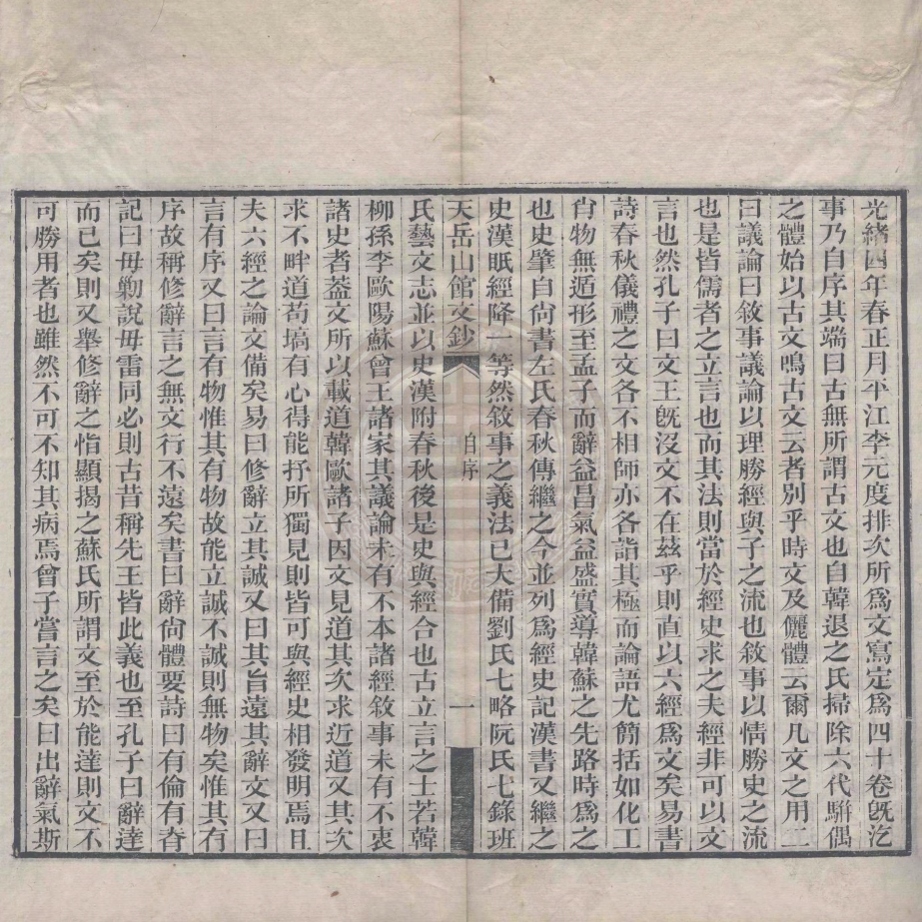 光緒四年春正月平江李元度排次所爲文寫定爲四十卷旣汔
事乃自序其端曰古無所謂古文也自韓退之氏掃除六代駢偶
之體始以古文鳴古文云者別乎時文及儷體云爾凡文之用二
曰議論曰敘事議論以理勝經與子之流也敘事以情勝史之流
也是皆儒者之立言也而其法則當於經史求之夫經非可以文
言也然孔子曰文王旣沒文不在茲乎則直以六經爲文矣易書
詩春秋儀禮之文各不相師亦各詣其極而論語尤簡括如化工
肖物無遁形至孟子而辭益昌氣益盛實導韓蘇之先路時爲之
也史肇自尙書左氏春秋傳繼之今並列爲經史記漢書又繼之
史漢眡經降一等然敘事之義法已大備劉氏七略阮氏七錄班
天岳山館文鈔
自序
一
氏藝文志並以史漢附春秋後是史與經合也古立言之士若韓
柳孫李歐陽蘇曾王諸家其議論未有不本諸經敘事未有不衷
諸史者葢文所以載道韓歐諸子因文見道其次求近道又其次
求不畔道苟塙有心得能抒所獨見則皆可與經史相發明焉且
夫六經之論文備矣易曰修辭立其誠又曰其旨遠其辭文又曰
言有序又曰言有物惟其有物故能立誠不誠則無物矣惟其有
序故稱修辭言之無文行不遠矣書曰辭尙體要詩曰有倫有脊
記曰毋勦說毋雷同必則古昔稱先王皆此義也至孔子曰辭達
而已矣則又舉修辭之恉顯揭之蘇氏所謂文至於能達則文不
可勝用者也雖然不可不知其病焉曾子嘗言之矣曰出辭氣斯